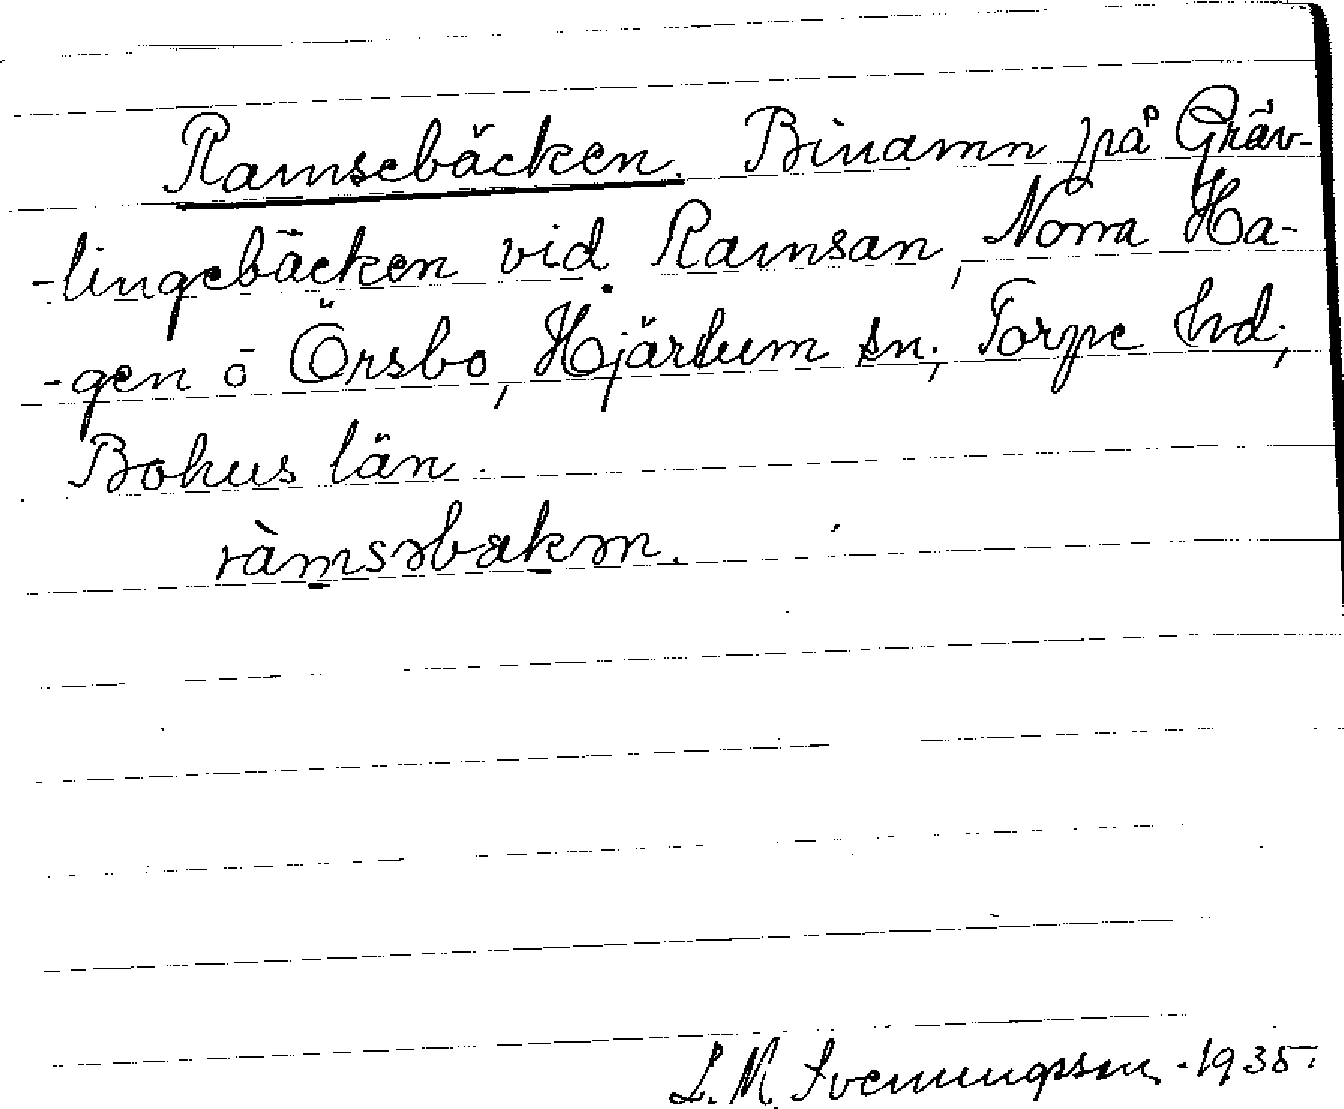 Ramsebäcken. Binamn på Gräv-
-lingebäcken vid Ramsan, Norra Ha-
-gen ö Örsbo, Hjärtum sn; Torpe hd,
Bohus län.
ràmsəbækən.
L. M. Svenungsson. 1935.